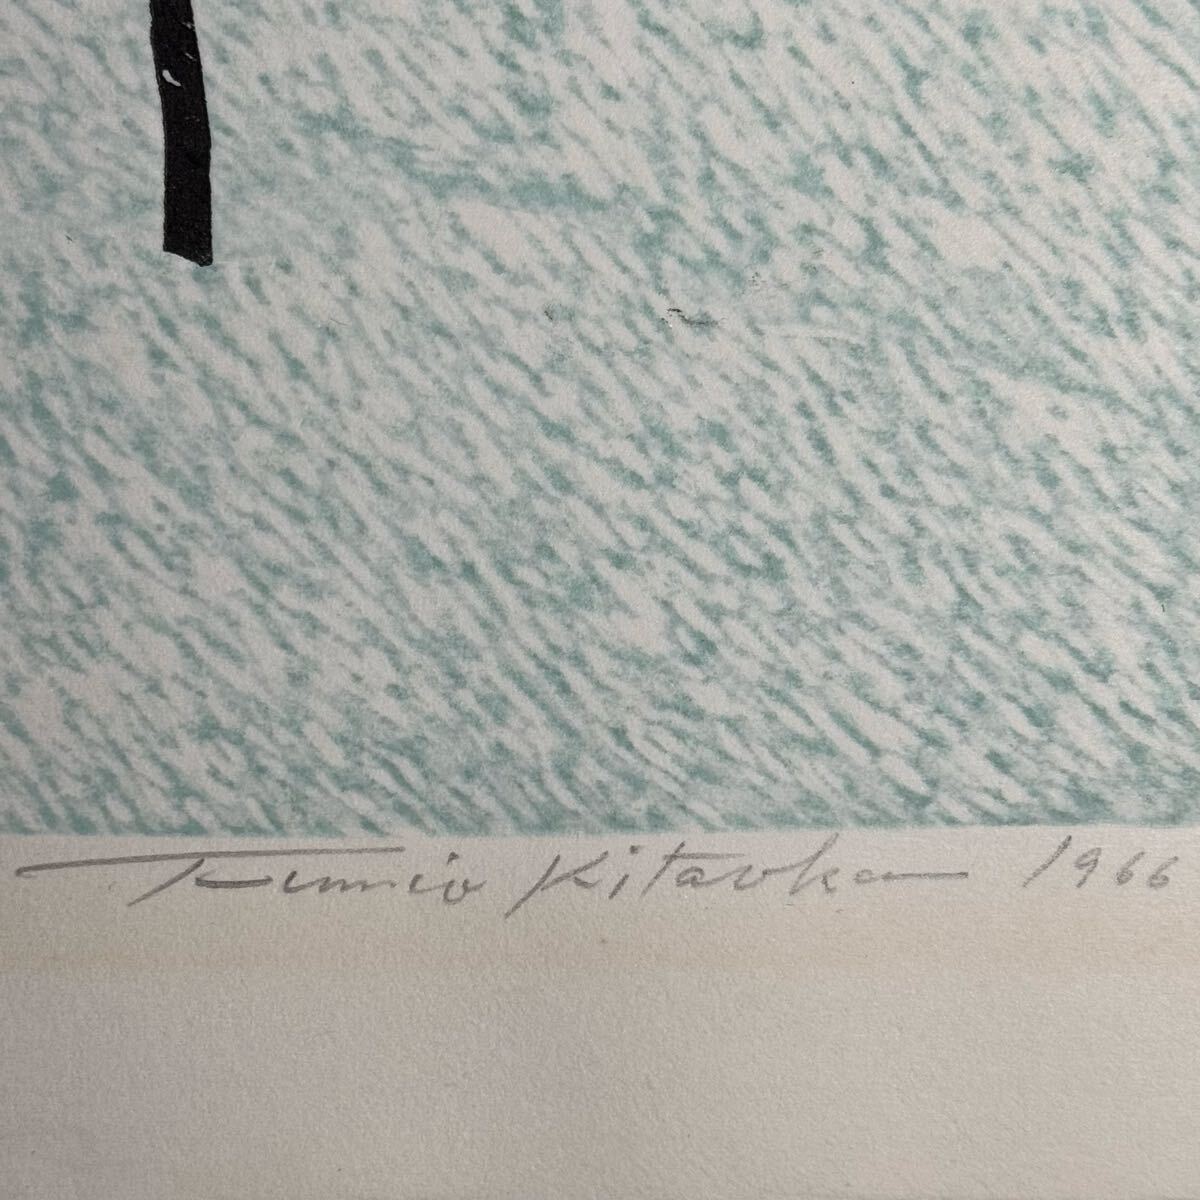 Fumio Kitaoka 1966